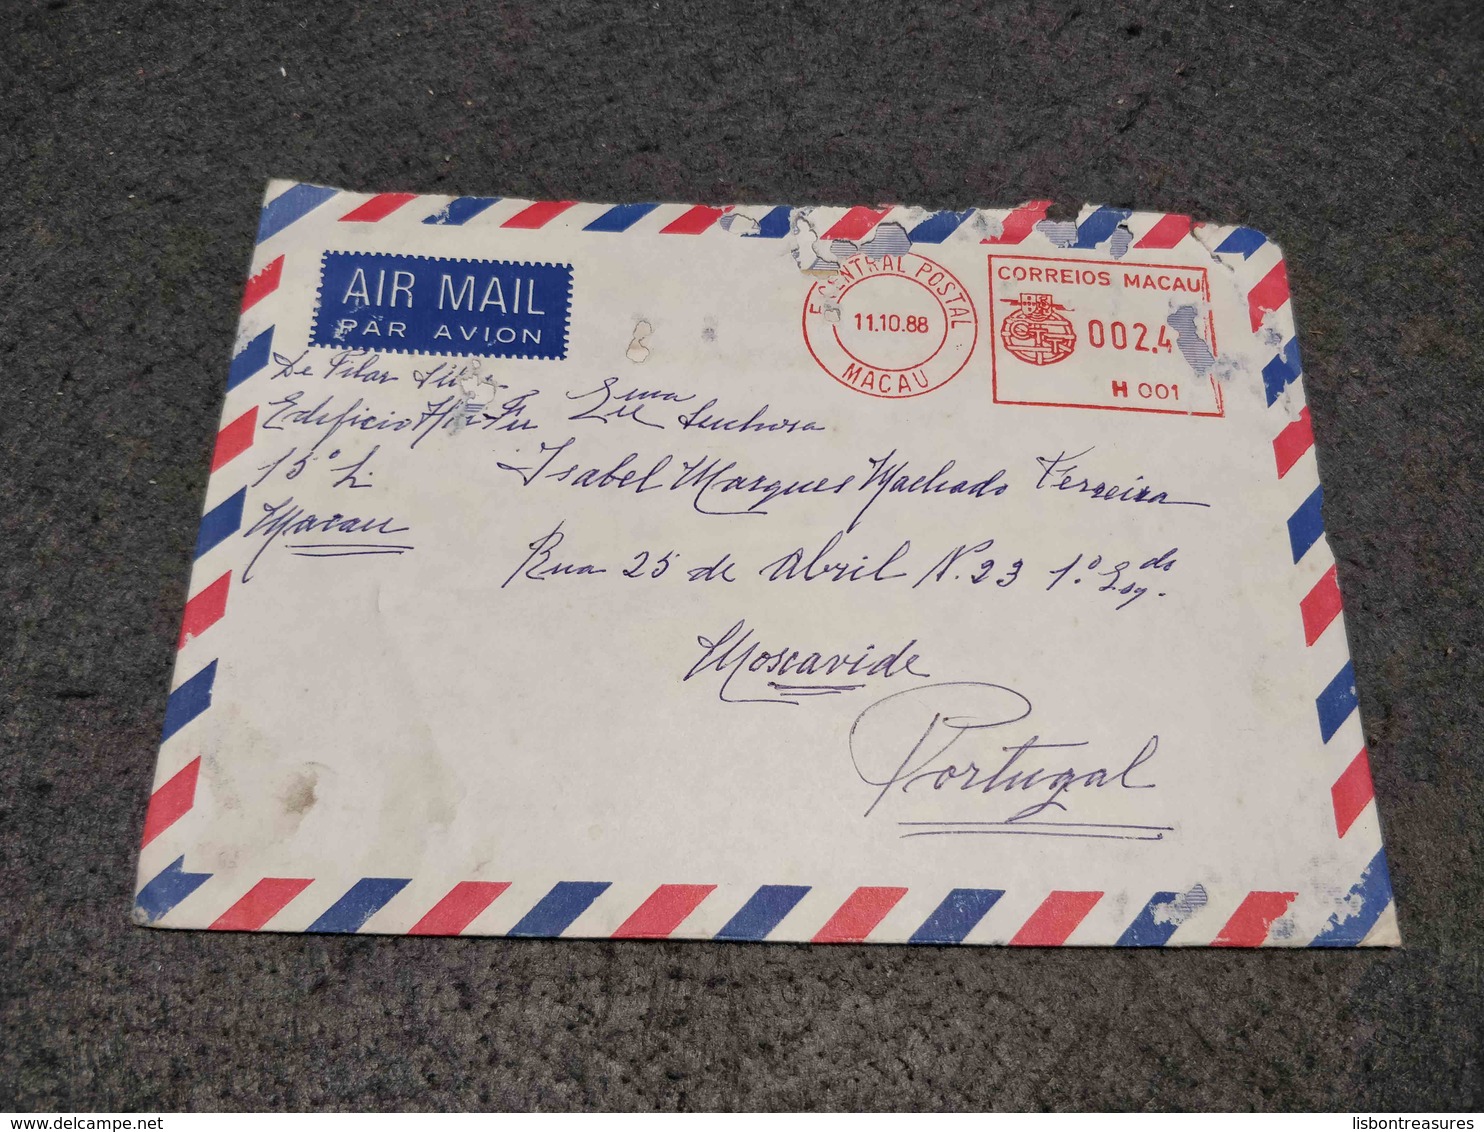 AIR MAIL
PAR AVION
E. CENTRAL POSTAL
11.10.88
MACAU
CORREIOS MACAU
002.4
H 001
De Pilar
Edificio
15º L
Macau
Exma Senhora
Isabel Marques Machado Ferreira
Rua 25 de Abril N. 23 1.º Esq.do
Moscavide
Portugal
delcampe.net
lisbontreasures